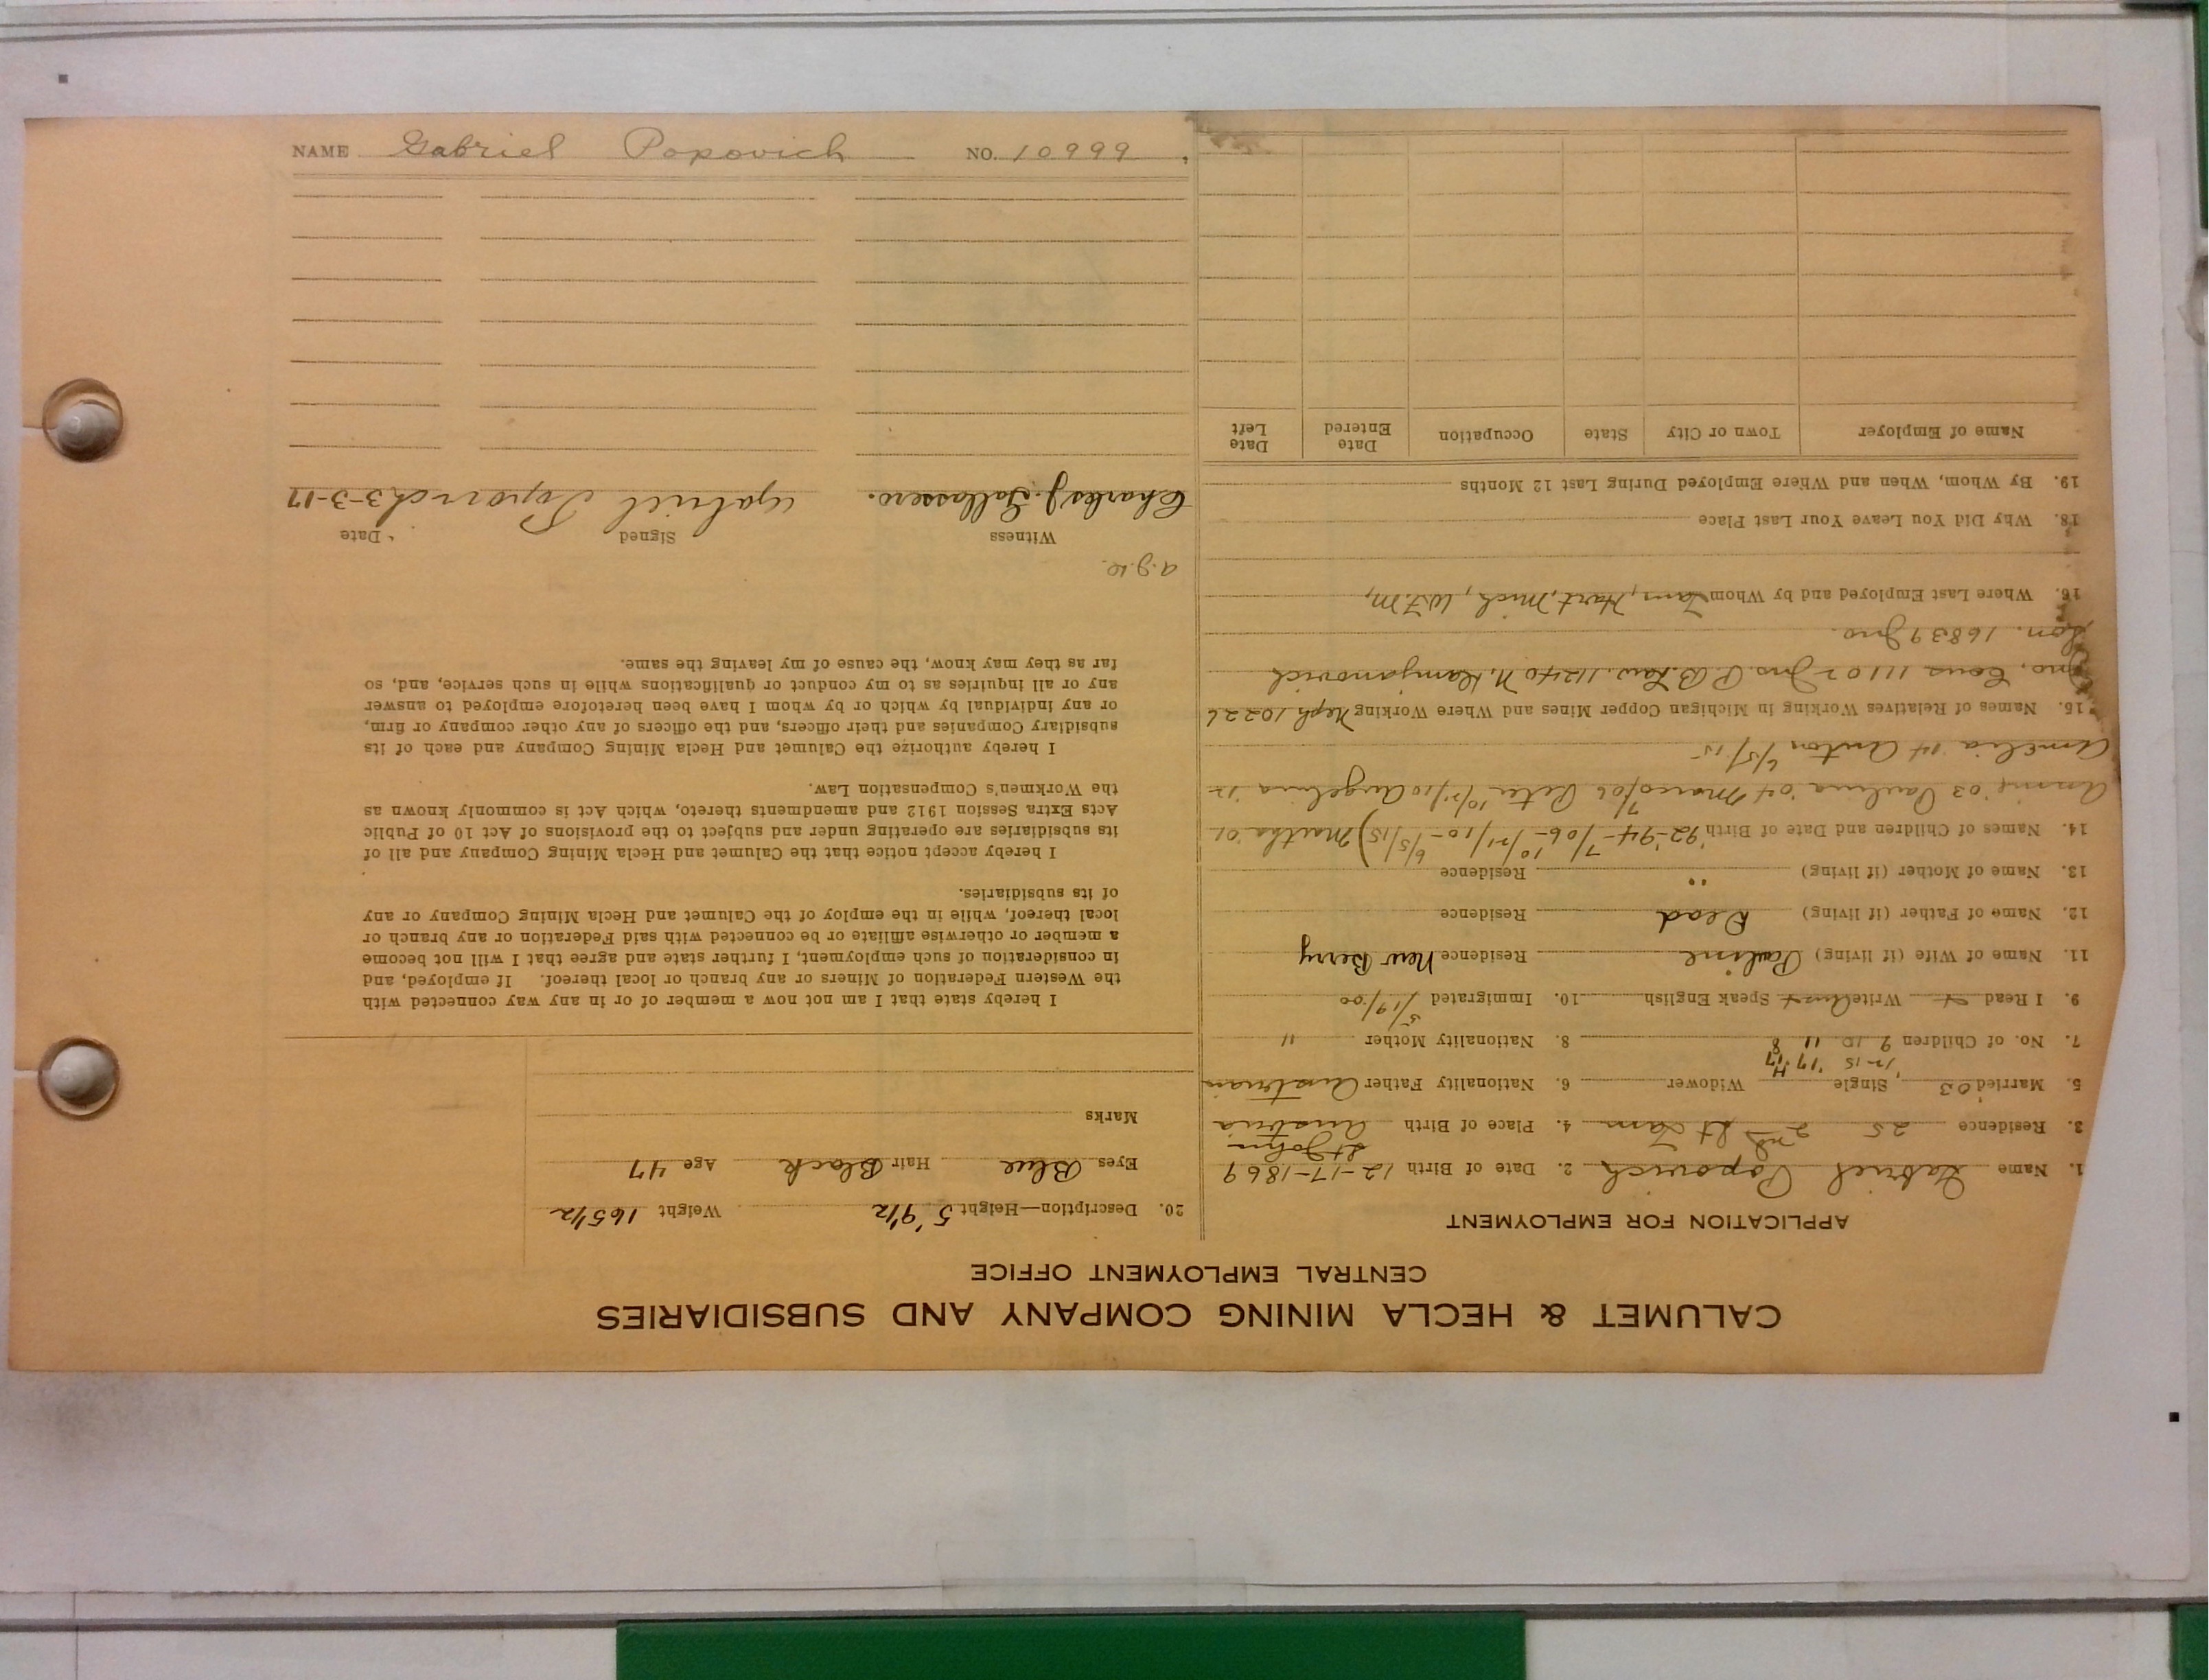 CALUMET & HECLA MINING COMPANY AND SUBSIDIARIES
CENTRAL EMPLOYMENT OFFICE
APPLICATION FOR EMPLOYMENT
1. Name Gabriel Popovich 2. Date of Birth 12-17-1869
St John
3. Residence 25 2nd St Lam 4. Place of Birth Austria
5. Married '03 Single Widower 6. Nationality Father Austrian
12-15 '17 4/17
7. No. of Children 9 10 11 8 8. Nationality Mother "
9. I Read Write Speak English 10. Immigrated 5/19/00
11. Name of Wife (if living) Pauline Residence New Berry
12. Name of Father (if living) Dead Residence
13. Name of Mother (if living) " Residence
14. Names of Children and Date of Birth '92-'94-7/06-10/21/10-6/5/15) Martha '01
Annie '03 Paulina '04 Marco 7/06 Peter 10/21/10 Angelina '12
Amelia '14 Anton 6/5/15
15. Names of Relatives Working in Michigan Copper Mines and Where Working Neph 10226
Jno. Cous 11102 Jno. P. B. Law. 11240 N. Klamjanovich
Son. 16839 Jno.
16. Where Last Employed and by Whom Hart, Mich, W.F.M,
18. Why Did You Leave Your Last Place
19. By Whom, When and Where Employed During Last 12 Months
Name of Employer Town or City State Occupation Date Entered Date Left
20. Description—Height 5' 9 1/2 Weight 165 1/2
Eyes Blue Hair Black Age 47
Marks
I hereby state that I am not now a member of or in any way connected with
the Western Federation of Miners or any branch or local thereof. If employed, and
in consideration of such employment, I further state and agree that I will not become
a member or otherwise affiliate or be connected with said Federation or any branch or
local thereof, while in the employ of the Calumet and Hecla Mining Company or any
of its subsidiaries.
I hereby accept notice that the Calumet and Hecla Mining Company and all of
its subsidiaries are operating under and subject to the provisions of Act 10 of Public
Acts Extra Session 1912 and amendments thereto, which Act is commonly known as
the Workmen's Compensation Law.
I hereby authorize the Calumet and Hecla Mining Company and each of its
subsidiary Companies and their officers, and the officers of any other company or firm,
or any individual by which or by whom I have been heretofore employed to answer
any or all inquiries as to my conduct or qualifications while in such service, and, so
far as they may know, the cause of my leaving the same.
a.g.k.
Witness Signed Date
Charles J. Gallassero. Gabriel Popovich 3-3-17
NAME Gabriel Popovich NO. 10999